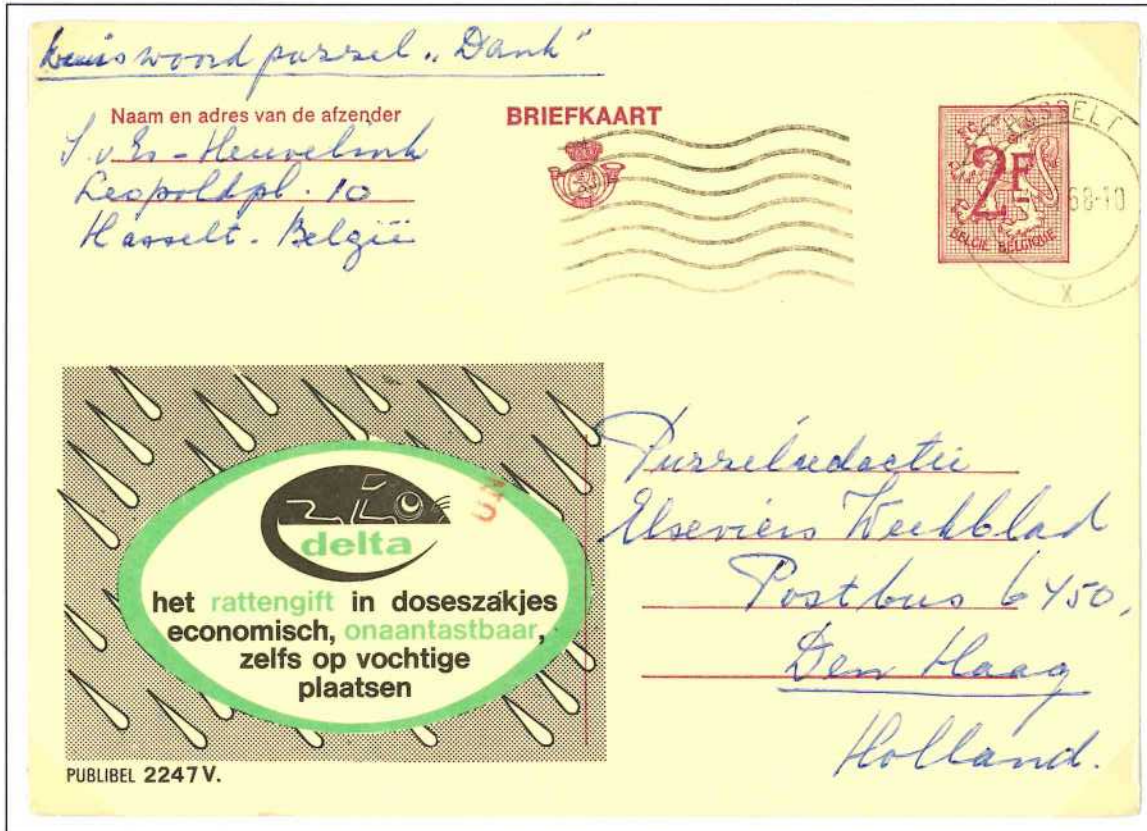 kruiswoord puzzel „Dank"
Naam en adres van de afzender
BRIEFKAART
S. v Es-Heuvelink
Leopoldpl. 10
Hasselt. België
HASSELT
2F
68-10
BELGIE BELGIQUE
X
delta
het rattengift in doseszakjes
economisch, onaantastbaar,
zelfs op vochtige
plaatsen
PUBLIBEL 2247 V.
Puzzelredactie
Elseviers Weekblad
Postbus 6450,
Den Haag
Holland.